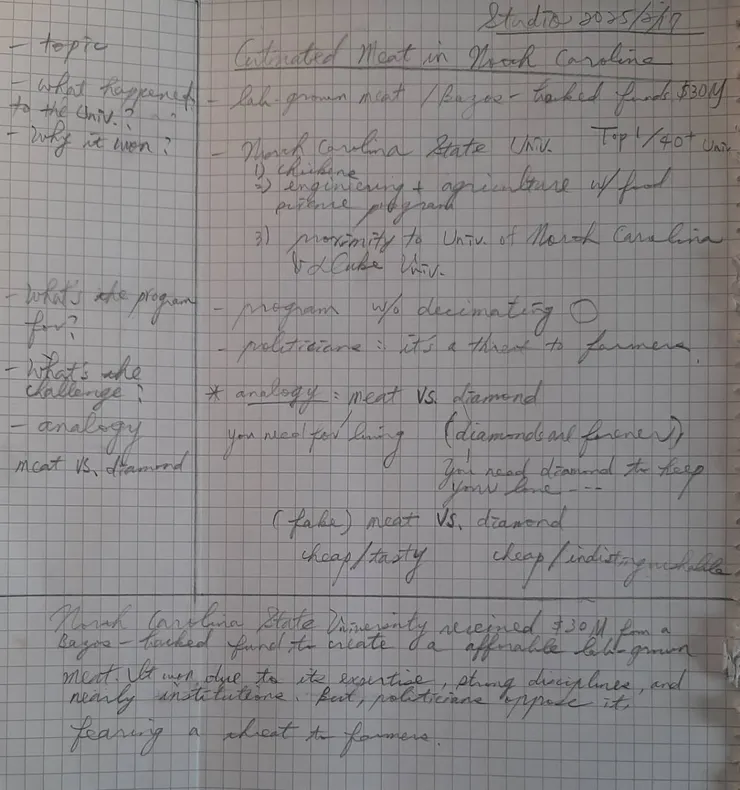 Studio 2025/2/17
- topic
- what happened
to the Univ.?
- Why it won?
- What's the program
for?
- What's the
challenge?
- analogy
meat VS. diamond
Cultivated Meat in North Carolina
- lab-grown meat / Bazos-backed funds $30M
- North Carolina State Univ. Top 1/40+ Univ.
1) chickens
2) engineering + agriculture w/ food
science program
3) proximity to Univ. of North Carolina
Univ.
- program w/o decimating
- politicians: it's a threat to farmers.
* analogy: meat VS. diamond
you need for living (diamonds are forever)
you need diamond to keep
your love ---
(fake) meat VS. diamond
cheap/tasty cheap/indistinguishable
North Carolina State University received $30M from a
Bazos-backed fund to create a afforable lab-grown
meat. It won due to its expertise, strong disciplines, and
nearly institutions. But, politicians oppose it,
fearing a threat to farmers.